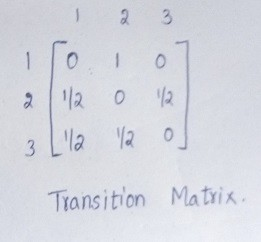 1 2 3
1 0 1 0
2 1/2 0 1/2
3 1/2 1/2 0
Transition Matrix.